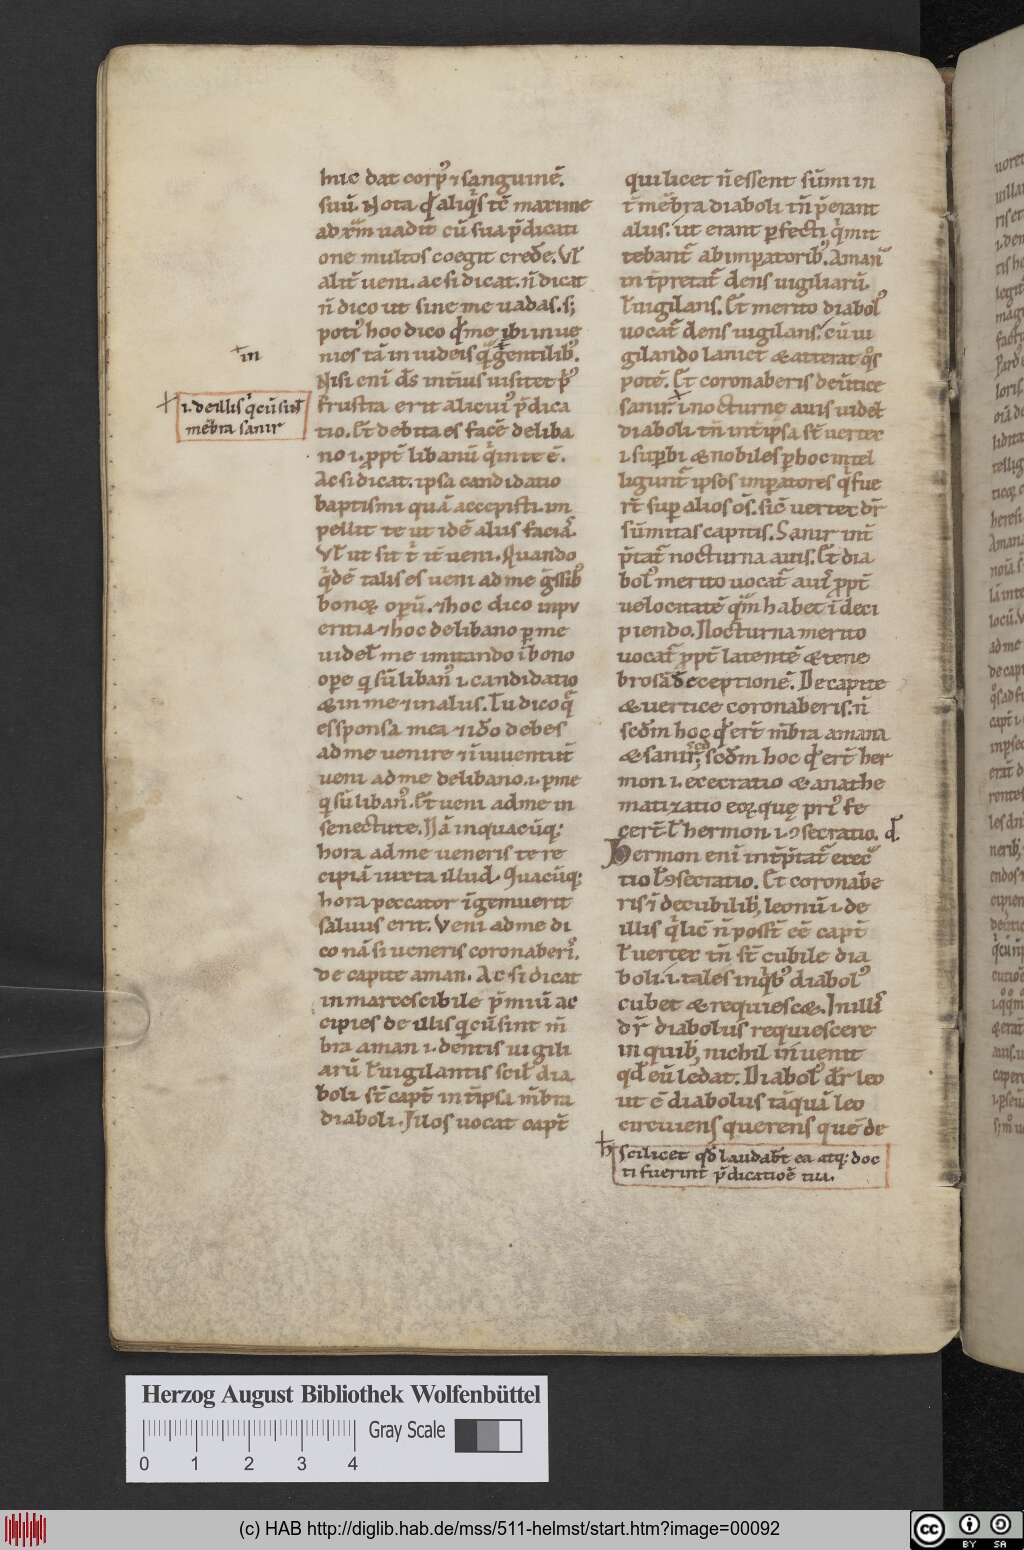 hic dat corp᷒ ⁊ sanguinē.
suū. Nota qđ aliq̇s tc̄ maxime
ad xp̄m uadit cū sua p̄dicati
one multos coegit crede. Vl̄
alit̄ ueni. ac si dicat. n̄ dicat
n̄ dico ut sine me uadas. s;
poti᷒ hoc dico qđ me ibi inue
nies tā in iudeis quā gentilib᷒.
Nisi eni d̄s inti᷒ uisitet p̄᷒
frustra erit alicui᷒ p̄dica
tio. Et debita es facē de liba
no .i. ꝓpt̄ libanū q̇ in te ē.
Ac si dicat. ipsa candidatio
baptismi quā accepisti. in
pellit te ut idē aliis faciā.
Vl̄ ut sit t̄ it̄ ueni. Quando
q̇dē talis es ueni ad me g̈ssib᷒
bonoꝝ opeꝝ. ⁊ hoc dico in pu
eritia ⁊ hoc de libano ꝑ me
uidel; me imitando ī bono
ope q̇ sū liban᷒ .i. candidatio
& in me ⁊ in alus. Tu dico q̄
es sponsa mea ⁊ iđo debes
ad me uenire ⁊ ī iuuentut̄
ueni ad me de libano .i. ꝑ me
q̇ sū liban᷒. Et ueni ad me in
senectute. Nā in quacūq;
hora ad me ueneris te re
cipiā iuxta illud. Quacūq;
hora peccator īgemuerit
saluus erit. Veni ad me di
co nā si ueneris coronaberi᷒.
de capite aman. Ac si dicat
in marcescibile p̄miū ac
cipies de illis q̇ cū sint m̄
bra aman .i. dentis uigili
arū ł uigilantis scil; dia
boli st̄ capt̄ int̄ ipsa m̄bra
diaboli. Illos uocat capt̄
+in
+ .i. de illis q̇ cū sint
mēbra sanir
qui licet n̄ essent sūmi in
t̄ mēbra diaboli tn̄ p̄erant
alus. ut erant ꝑfecti q̇ mit
tebant᷒ ab imꝑatorib᷒. Aman
int̄pretat᷒ dens uigiliarū.
ł uigilans. Et merito diabol᷒
uocat᷒ dens uigilans. cū ui
gilando laniet & atterat q̊s
potē. Et coronaberis de ūtice
sanir. .i. nocturne auis uidel;
diaboli. tn̄ int̄ ipsa st̄ uertex
.i. suꝑbi & nobiles ꝑ hoc intel
ligunt᷒ ipsos imꝑatores q̇ fue
rt̄ suꝑ alios os̄. sic̄ uertex dr̄
sūmitas capitis. Sanir int̄
p̄tat᷒ nocturna auis. Et dia
bol᷒ merito uocat᷒ auis ꝓpt̄
uelocitatē quā habet ī deci
piendo. Nocturna merito
uocat᷒ ꝓpt̄ latentē & tene
brosā deceptionē. De capite
& uertice coronaberis. n̄
scđm hoc qđ ert̄ m̄bra amana
& sanir, s; scđm hoc qđ ert̄ her
mon .i. execratio & anathe
matizatio eoꝝ quę pri᷒ fe
cert̄ ł hermon .i. ꝯsecratio. qđ
Hermon eni int̄p̄tat᷒ execͣ
tio ł ꝯsecratio. Et coronabe
ris ī de cubilib; leonū .i. de
illis q̇ lic̄ n̄ poss̄t ēē capt̄
ł uertex tn̄ st̄ cubile dia
boli .i. tales in q̇b᷒ diabol᷒
cubet & requiescat. In illis
dr̄ diabolus requiescere
in quib; nichil inuenit
qđ eū ledat. Diabol᷒ dr̄ leo
ut ē diabolus tāquā leo
circuiens querens quē de
+ scilicet qđ laudabt̄ ea atq; doc
ti fuerint p̄dicatioē tua.
Herzog August Bibliothek Wolfenbüttel
Gray Scale
0 1 2 3 4
(c) HAB http://diglib.hab.de/mss/511-helmst/start.htm?image=00092
cc BY SA